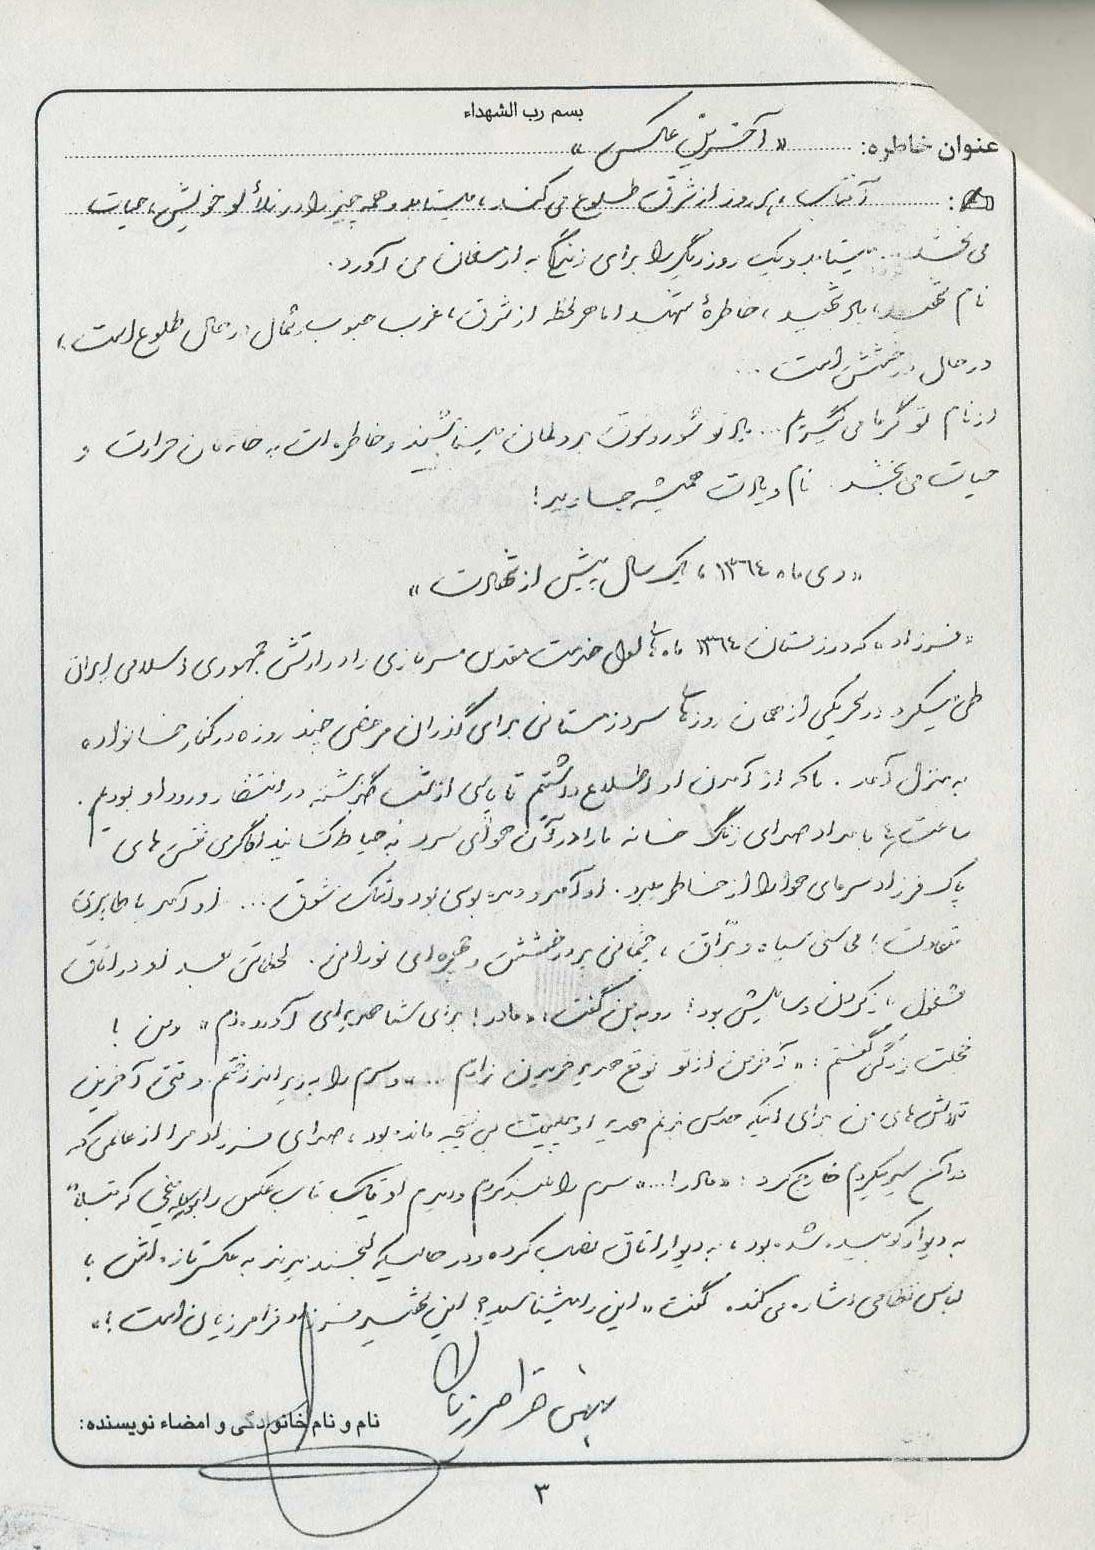 بسم رب الشهداء
عنوان خاطره: «آخرین عکس»
آفتاب، هر روز از شرق طلوع می‌کند، میتابد و همه چیز را در تلألو خویش، حیات
می بخشد... میتابد و یک روز دیگر را برای زندگی به ارمغان می آورد.
نام شهید، یاد شهید، خاطرهٔ شهید اما هر لحظه از شرق، غرب جنوب شمال در حال طلوع است،
در حال درخشش است...
از نام تو گرما می گیریم... یاد تو شور و شوق بر دلمان میتاباند و خاطره ات به خانه مان حرارت و
حیات می بخشد. نام و یادت همیشه جاوید!
«دی ماه ١٣٦٤، یک سال پیش از شهادت»
«فرزاد» که در زمستان ١٣٦٤ ماه های اول خدمت مقدس سربازی را در ارتش جمهوری اسلامی ایران
طی میکرد در یکی از همان روزهای سرد زمستانی برای گذران مرخصی چند روزه در کنار خانواده
به منزل آمد. ما که از آمدن او اطلاع داشتیم تا پاسی از شب گذشته در انتظار ورود او بودیم.
ساعت بامداد صدای زنگ خانه ما را در آن هوای سرد به حیاط کشانید اما گرمی نفس های
پاک فرزاد سرمای هوا را از خاطر میبرد. او آمد و دیده بوسی بود و اشک شوق... او آمد با ظاهری
متفاوت؛ محاسنی سیاه و براق، چشمانی پر درخشش و چهره ای نورانی. لحظاتی بعد او در اتاق
مشغول باز کردن وسایلش بود؛ رو به من گفت: «مادر! برای شما هدیه ای آورده ام» و من با
خجلت زدگی گفتم: «آخر من از تو توقع هدیه خریدن ندارم...» و سرم را به زیر انداختم. وقتی آخرین
تلاش های من برای اینکه حدس بزنم هدیه او چیست بی نتیجه مانده بود، صدای فرزاد مرا از عالمی که
در آن سیر میکردم خارج کرد: «مادر!...» سرم را بلند کردم و دیدم او یک قاب عکس را به میخی که قبلاً
به دیوار کوبیده شده بود، به دیوار اتاق نصب کرده و در حالیکه لبخند میزند به عکس تازه اش با
لباس نظامی اشاره می کند. گفت «این را میشناسید؟ این شهید فرزاد فرامرزیان است!»
فرامرزیان
نام و نام خانوادگی و امضاء نویسنده:
٣